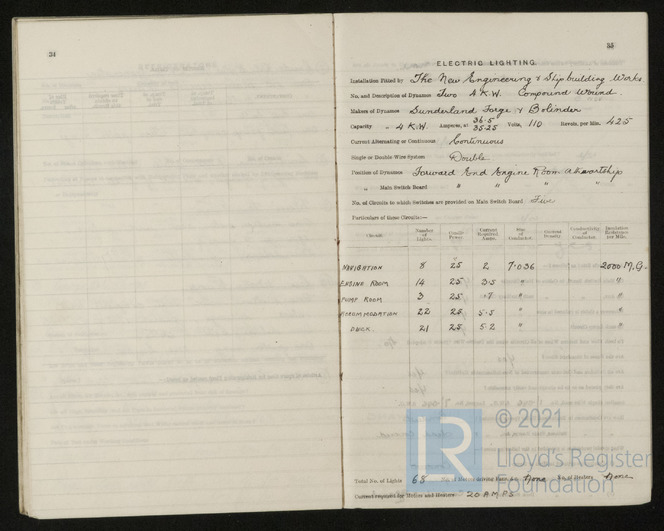 34
35
ELECTRIC LIGHTING.
Installation Fitted by The New Engineering & Shipbuilding Works
No. and Description of Dynamos Two 4 K.W. Compound Wound.
Makers of Dynamos Sunderland Forge & Bolinder
Capacity „ 4 K.W. Amperes, at 36.5 35.25 Volts, 110 Revols. per Min. 425
Current Alternating or Continuous Continuous
Single or Double Wire System Double
Position of Dynamos Forward End Engine Room Athwartship
„ Main Switch Board " " " "
No. of Circuits to which Switches are provided on Main Switch Board Five
Particulars of these Circuits:—
Circuit. Number of Lights. Candle Power. Current Required. Amps. Size of Conductor. Current Density. Conductivity of Conductor. Insulation Resistance per Mile.
NAVIGATION 8 25 2 7.036 2000 M.G.
ENGINE ROOM 14 25 3.5 " "
PUMP ROOM 3 25 .7 " "
ACCOMMODATION 22 25 5.5 " "
DECK. 21 25 5.2 " "
Total No. of Lights 68 No. of Motors driving Fans, &c. None No. of Heaters None
Current required for Motors and Heaters 20 AMPS
LR
© 2021
Lloyd's Register
Foundation